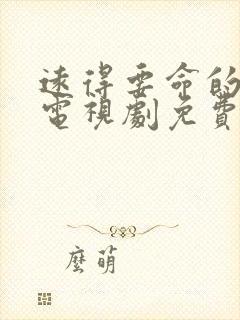 遠得要命的
電視劇免費
麼萌